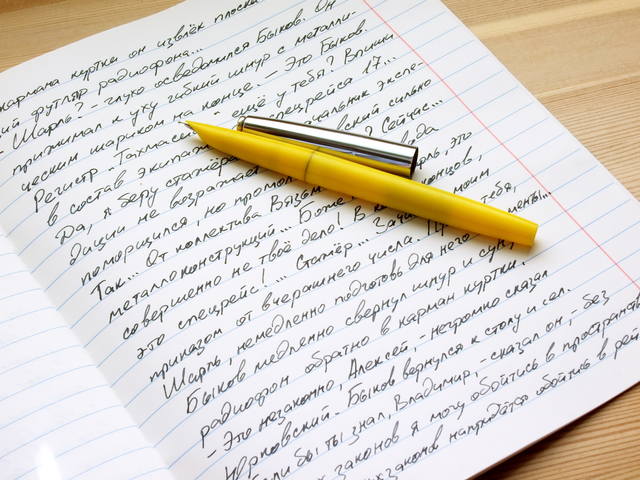 кармана куртки он извлёк плоски
кий футляр радиофона...
- Шарль? - глухо осведомился Быков. Он
прижимал к уху гибкий шнур с металли-
ческим шариком на конце. - Это Быков.
Регистр - Тахмасиб - ещё у тебя? Впиши
в состав экипажа спецрейса 17...
Да, я беру стажёра начальник экспе-
диции не возражает ский сильно
поморщился, но промол ? Сейчас...
Так... От коллектива Вязьм
металлоконструкций... Боже это
совершенно не твоё дело! В концов,
это спецрейс!... Стажёр... Зачи моим
приказом от вчерашнего числа. тебя,
Шарль, немедленно подготовь для него менты...
Быков медленно свернул шнур и сун
радиофон обратно в карман куртки.
- Это незаконно, Алексей, - негромко сказал
Юрковский. Быков вернулся к столу и сел.
Если бы ты знал, Владимир, - сказал он, - без
законов я могу обойтись в пространс
законов придётся обойтись в рей